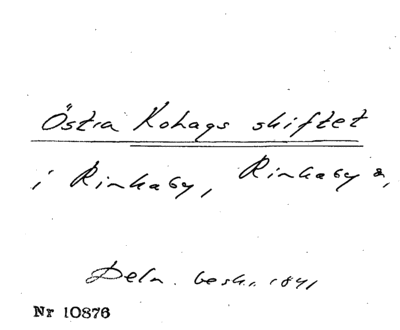 Östra Kohags skiftet
i Rinkaby, Rinkaby s,
Deln. beskr. 1841
Nr 10876